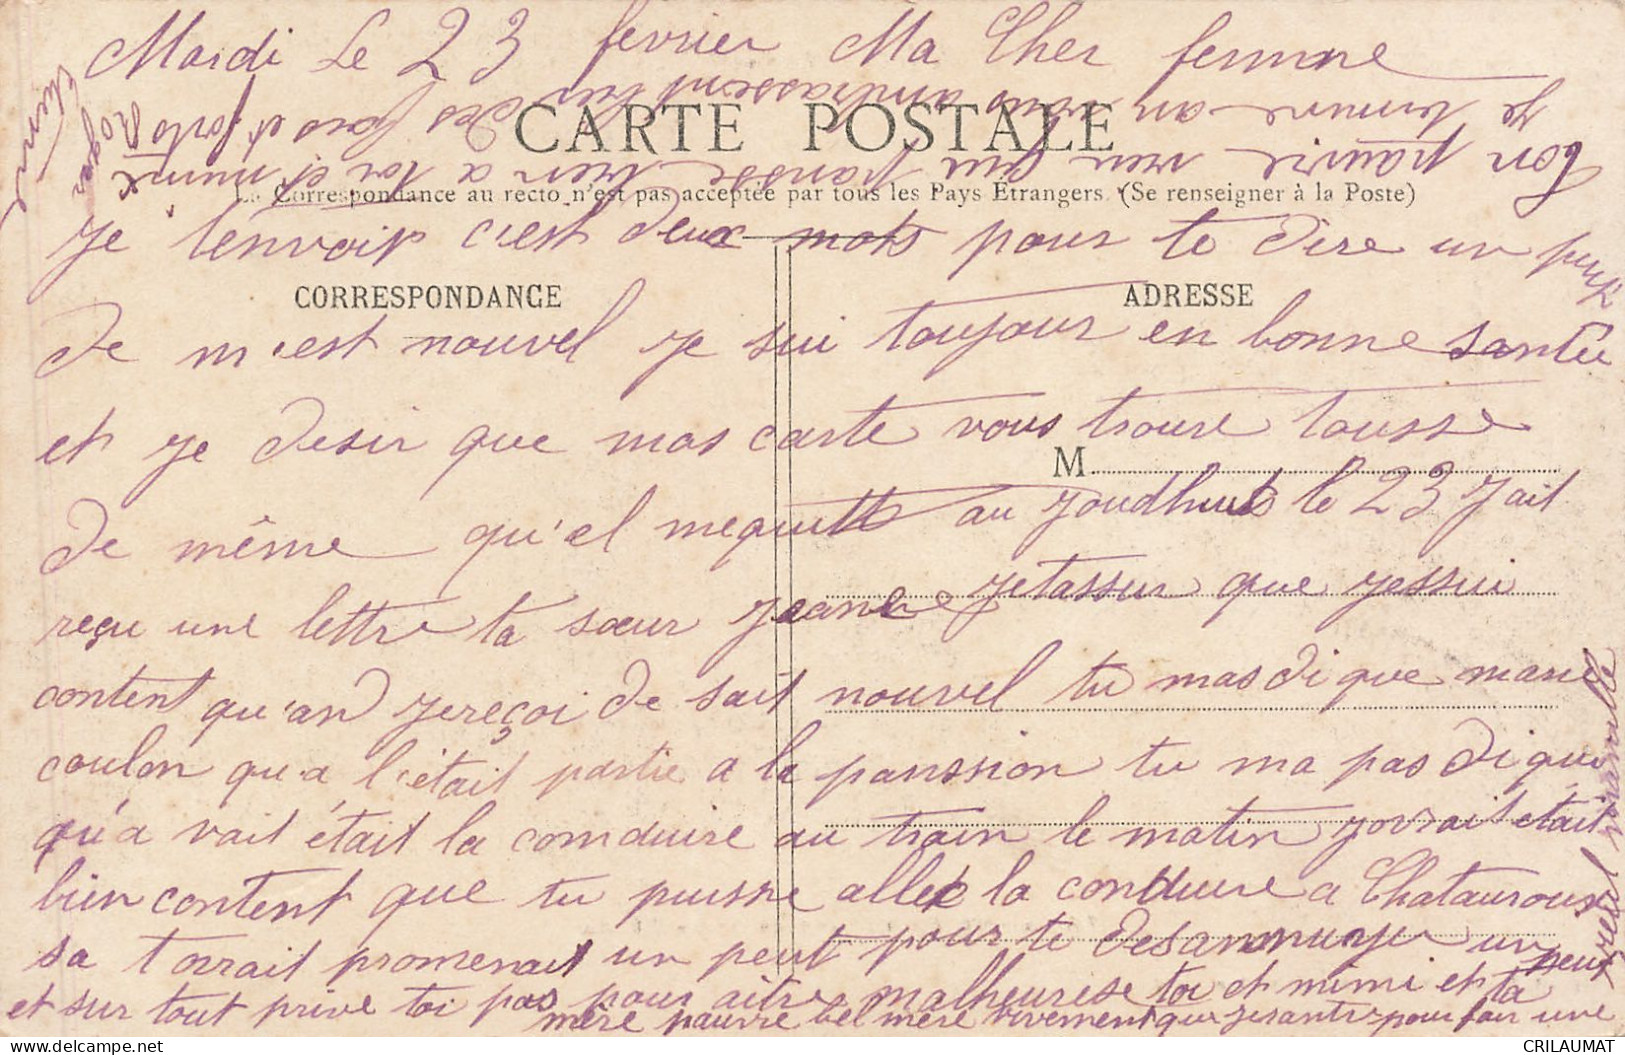 Mardi Le 23 fevrier Ma Cher femme
CARTE POSTALE
La Correspondance au recto n'est pas acceptée par tous les Pays Étrangers (Se renseigner à la Poste)
Je tenvoir c'est deux mots pour te dire un peux
CORRESPONDANCE
ADRESSE
de m'est nouvel je sui toujour en bonne santée
et je desir que mas carte vous trouve tousse
M
de même qu'el mequitte au joudhui le 23 Jait
reçu une lettre ta sœur Jeanne jetassur que jessui
content qu'an jereçoi de sait nouvel tu mas di que marie
coulon qu'a l'était partie a la panssion tu ma pas di que
qu'a vait était la comduire au train le matin jorrait etait
bien content que tu puisse aller la conduire a Chataurous
sa torrait promenait un peut pour te desannuyer un peux
et sur tout prive toi pas pour aitre malheurese toi et mimi et ta
mère pauvre bel mère vivement que jerantre pour fair une
nouvelle
Je termine an vous ambrassent bien des fois et forts
ton pauvre neu qui pansse bien a toi et mimi
Roger